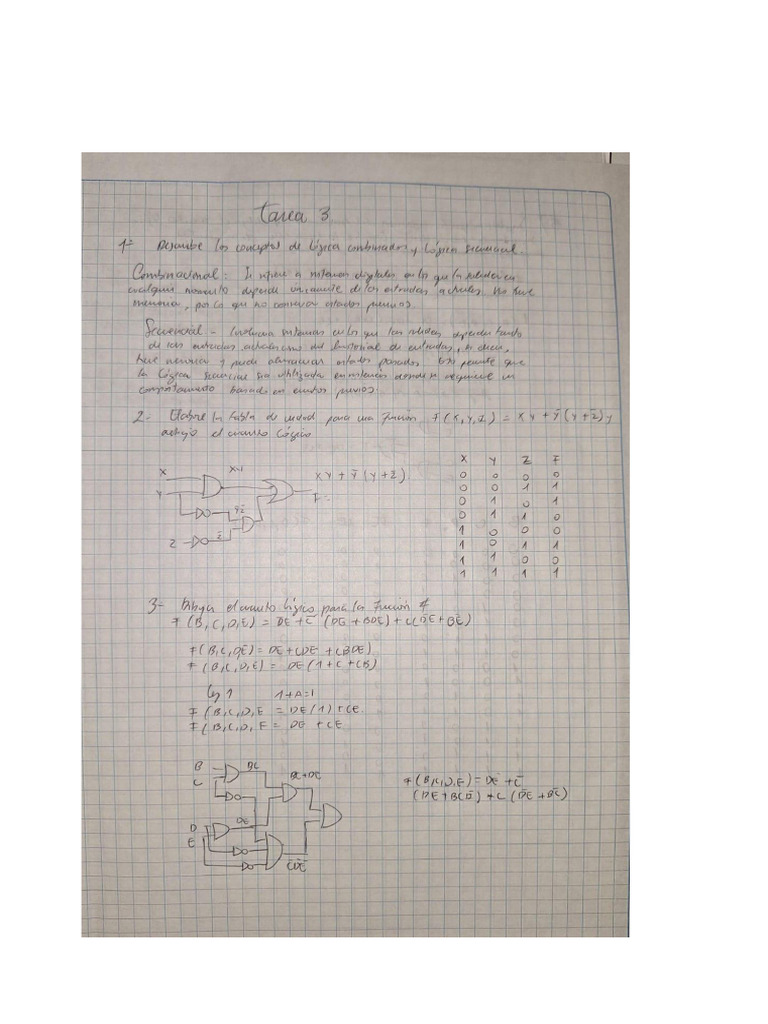 Tarea 3
1- Describe los conceptos de lógica combinados y lógica secuencial.
Combinacional: Se refiere a sistemas digitales en los que la salida en
cualquier momento depende unicamente de las entradas actuales. No tiene
memoria, por lo que no conservan estados previos.
Secuencial - Involucra sistemas en los que las salidas dependen tanto
de las entradas actuales como del historial de entradas, es decir,
tiene memoria y puede almacenar estados pasados. Esto permite que
la lógica secuencial sea utilizada en sistemas donde se requiere un
comportamiento basado en eventos previos.
2- Elabore la tabla de verdad para una Función F(X,Y,Z) = XY + Ȳ(Y+Z̄) y
dibuje el circuito lógico
X Y Z F
0 0 0 0
0 0 1 1
0 1 0 1
0 1 1 0
1 0 0 0
1 0 1 1
1 1 0 0
1 1 1 1
X
XY
XY + Ȳ(Y+Z̄)
Y
F=
Z
Z̄
3- Dibujar el circuito lógico para la Función
F(B,C,D,E) =
F(B,C,D,E) = DE(1+C+CB)
Ley 1 1+A=1
F(B,C,D,E = DE(1) + CE
F(B,C,D,E = DE + CE
B
BC
C
D
DE
E